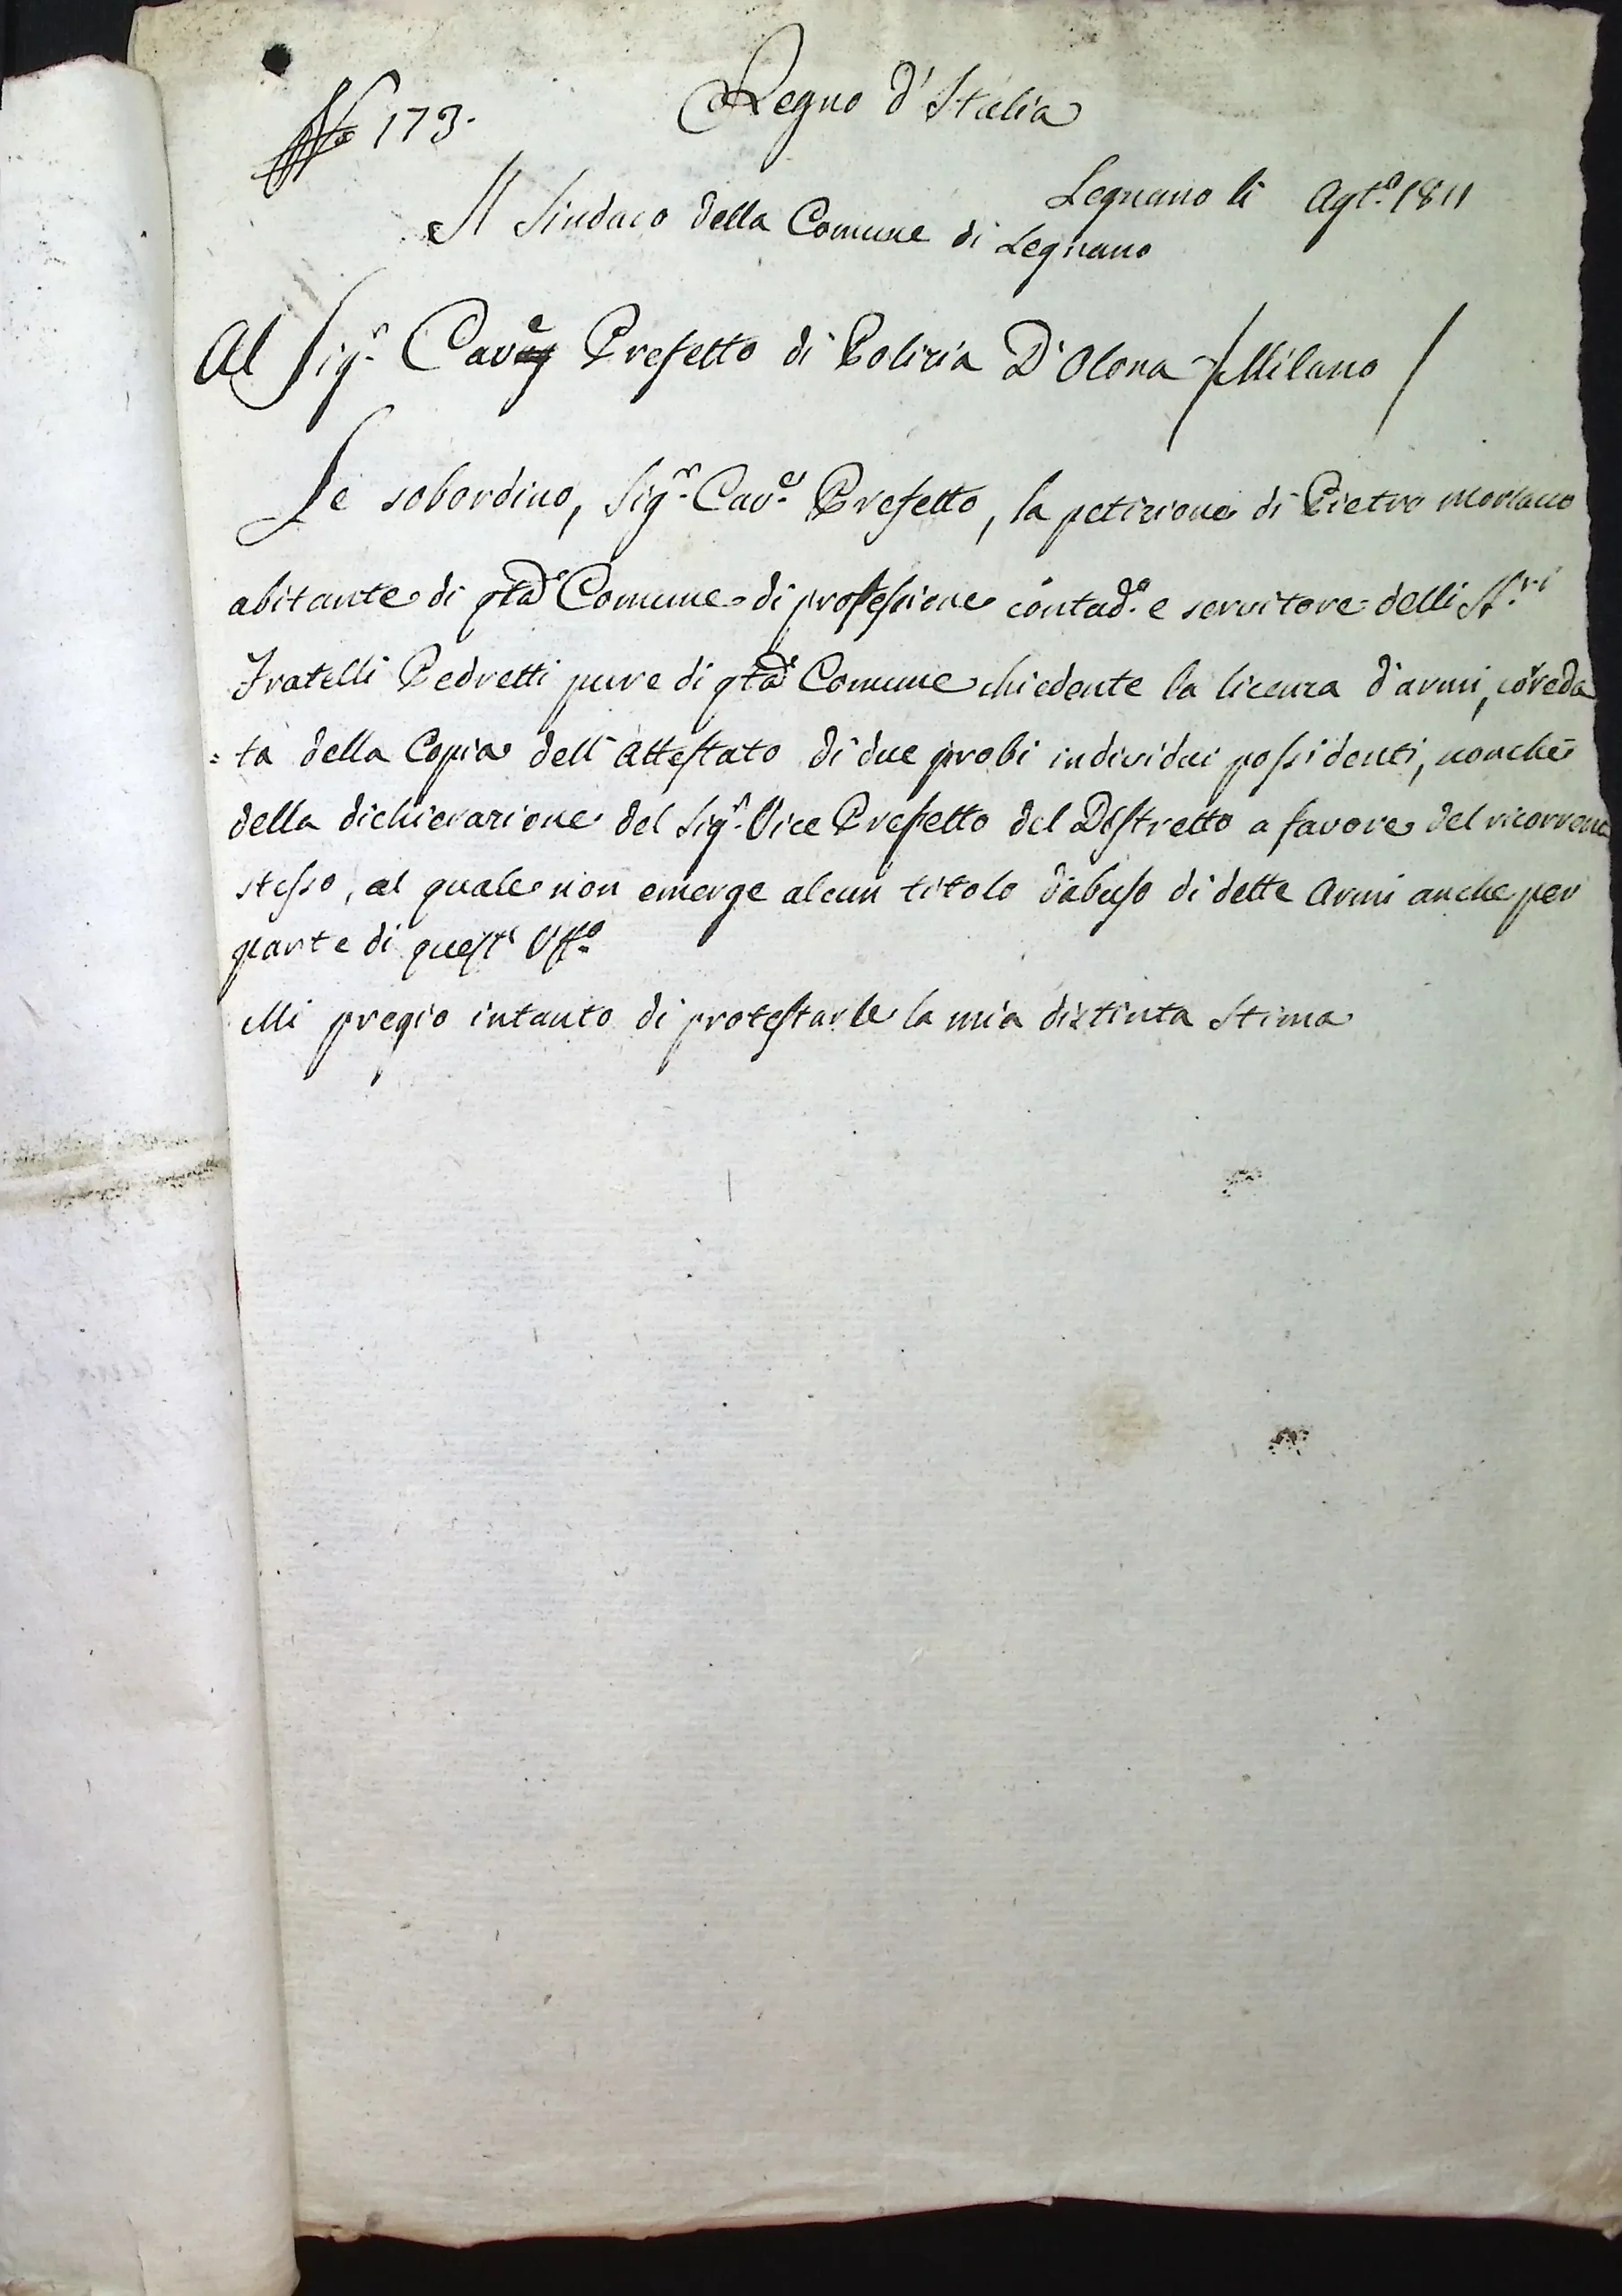 N.º 173.
Regno d'Italia
Legnano li Agt.º 1811
Il Sindaco della Comune di Legnano
Al Sig.r Cav.e Prefetto di Polizia D'Olona /Milano/
Le sobordino, Sig.r Cav.e Prefetto, la petizione di Pietro Morlano
abitante di qta Comune di professione contad.º e servitore delli SS.ri
Fratelli Pedretti pure di qta Comune chiedente la licenza d'armi, coreda
= ta della Copia dell'attestato di due probi individui possidenti, nonchè
della dichiarazione del Sig.r Vice Prefetto del Distretto a favore del ricorrente
stesso, al quale non emerge alcun titolo d'abuso di dette armi anche per
parte di quest' Uff.º
Mi pregio intanto di protestarle la mia distinta stima